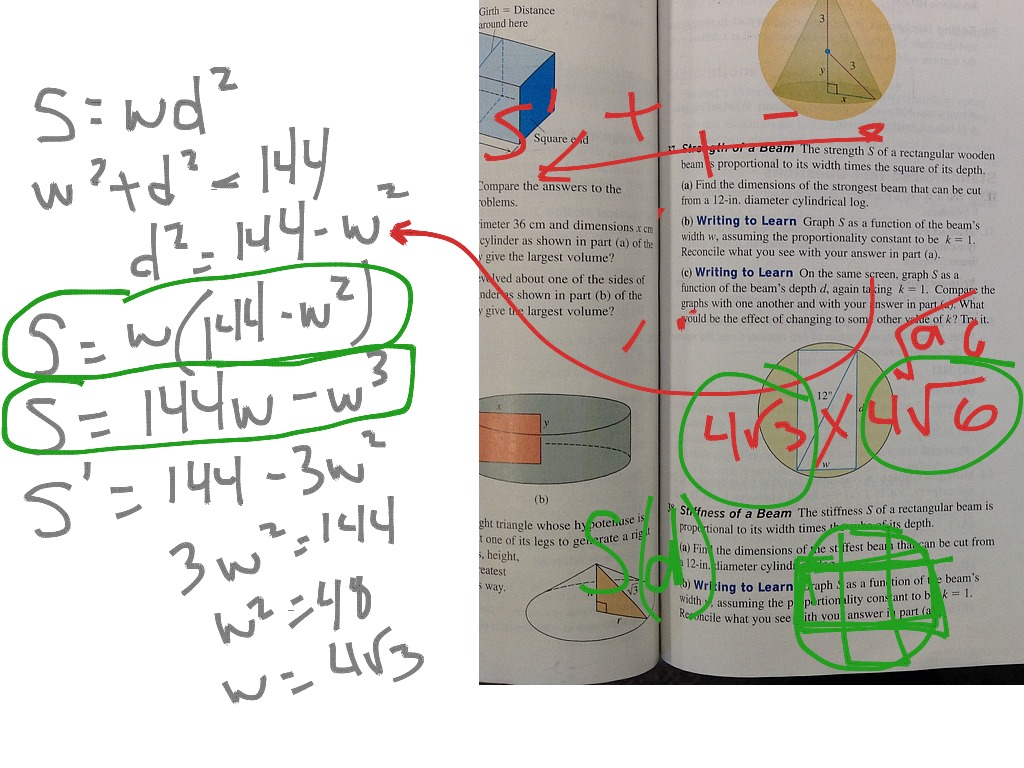 S = wd²
w² + d² = 144
d² = 144 - w²
S = w(144 - w²)
S = 144w - w³
S' = 144 - 3w²
3w² = 144
w² = 48
w = 4√3
Girth = Distance
around here
Square end
Compare the answers to the
roblems.
rimeter 36 cm and dimensions x cm
cylinder as shown in part (a) of the
y give the largest volume?
volved about one of the sides of
nder as shown in part (b) of the
y give the largest volume?
x
y
(b)
ght triangle whose hypotenuse is
t one of its legs to generate a right
s, height,
reatest
s way.
√3
r
3
3
y
x
S' + -
37. Strength of a Beam The strength S of a rectangular wooden
beam is proportional to its width times the square of its depth.
(a) Find the dimensions of the strongest beam that can be cut
from a 12-in. diameter cylindrical log.
(b) Writing to Learn Graph S as a function of the beam's
width w, assuming the proportionality constant to be k = 1.
Reconcile what you see with your answer in part (a).
(c) Writing to Learn On the same screen, graph S as a
function of the beam's depth d, again taking k = 1. Compare the
graphs with one another and with your answer in part (a). What
would be the effect of changing to some other value of k? Try it.
√96
12"
d
w
4√3 x 4√6
S(d)
38. Stiffness of a Beam The stiffness S of a rectangular beam is
proportional to its width times the cube of its depth.
(a) Find the dimensions of the stiffest beam that can be cut from
a 12-in. diameter cylindrical
(b) Writing to Learn Graph S as a function of the beam's
width w, assuming the proportionality constant to be k = 1.
Reconcile what you see with your answer in part (a)